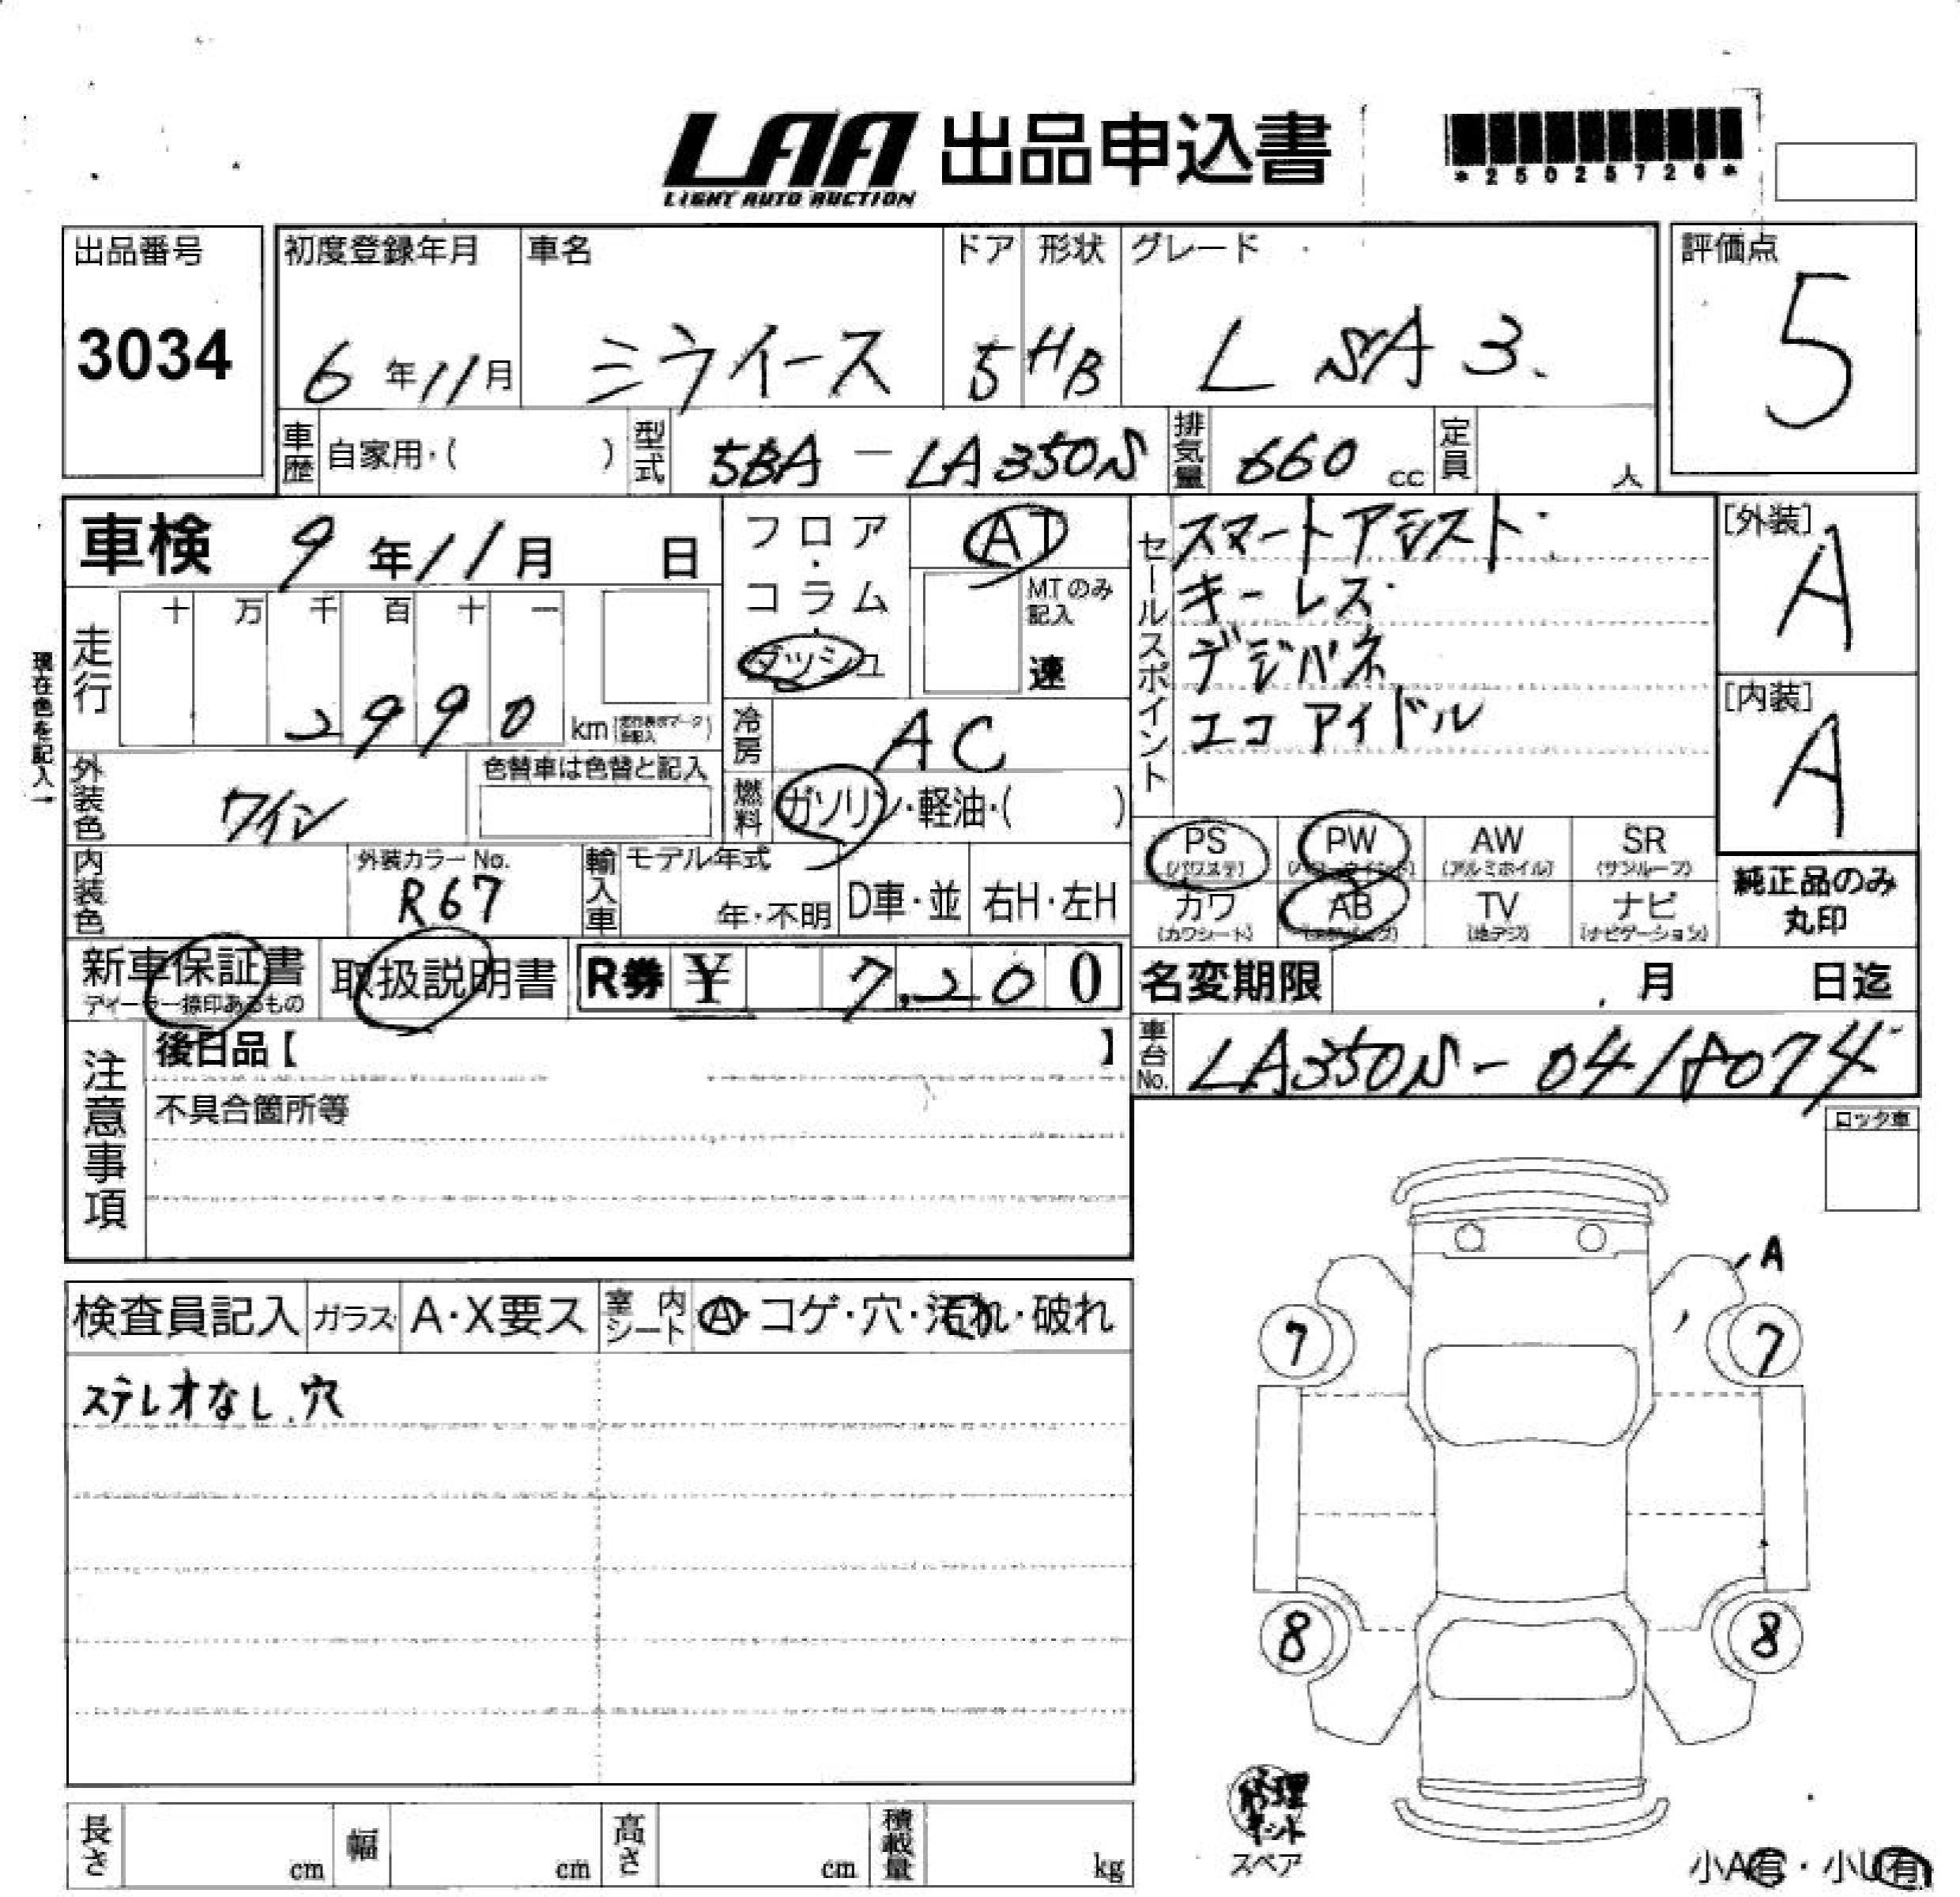 LAA 出品申込書
LIGHT AUTO AUCTION
*25025726*
出品番号
3034
初度登録年月 車名 ドア 形状 グレード
6年11月 ミライース 5 HB L SA3.
評価点
5
車歴 自家用・( ) 型式 5BA-LA350S 排気量 660cc 定員 人
車検 9年11月 日
フロア・コラム・ダッシュ
AT
MTのみ記入
速
現在色を記入→
走行 十万千百十一
2990 km
冷房 AC
燃料 ガソリン・軽油・( )
外装色 ワイン 色替車は色替と記入
内装色 外装カラーNo. R67
輸入車 モデル年式 年・不明 D車・並 右H・左H
セールスポイント
スマートアシスト
キーレス
デジパネ
エコアイドル
[外装] A
[内装] A
PS (パワステ) PW AW (アルミホイル) SR (サンルーフ)
カワ (カワシート) AB TV (地デジ) ナビ (ナビゲーション)
純正品のみ丸印
新車保証書 ディーラー捺印あるもの
取扱説明書
R券 ¥ 7,200
名変期限 月 日迄
車台No. LA350S-0418074
注意事項
後日品【 】
不具合箇所等
ロック車
検査員記入 ガラス A・X要ス 室内シート A・コゲ・穴・汚れ・破れ
ステレオなし、穴
A
7 7
8 8
修理キット
スペア
小A有・小U有
長さ cm 幅 cm 高さ cm 積載量 kg